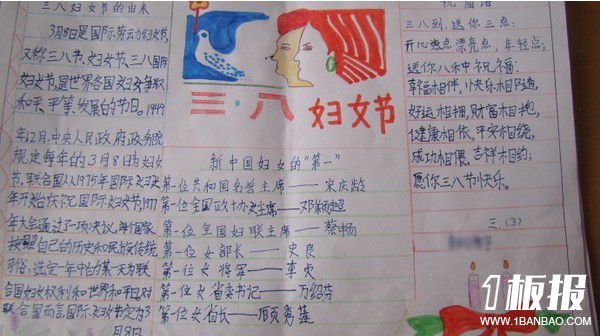 三八妇女节的由来
3月8日是国际劳动妇女节,
又称三八节、妇女节、三八国际
妇女节,是世界各国妇女争取
和平、平等、发展的节日。1949
年12月,中央人民政府政务院
规定每年的3月8日为妇女
节。联合国从1975年国际妇女
年开始庆祝国际妇女节,1977
年大会通过了一项决议,每个国家
按照自己的历史和民族传统
习俗,选定一年中的某一天为联
合国妇女权利和世界和平日对
联合国而言,国际妇女节定为3
月8日
三·八
妇女节
新中国妇女的"第一"
第一位共和国名誉主席——宋庆龄
第一位全国政协女主席——邓颖超
第一位全国妇联主席——蔡畅
第一位女部长——史良
第一位女将军——李贞
第一位女省委书记——万绍芬
第一位女省长——顾秀莲
祝福语
三八到,送你三点:
开心点漂亮点,年轻点;
送你八种祝福:
幸福相伴,快乐相随,
好运相拥,财富相抱,
健康相依,平安相绕,
成功相偎,吉祥相约;
愿你三八节快乐。
三.(3)
1板报
WWW.1BANBAO.COM